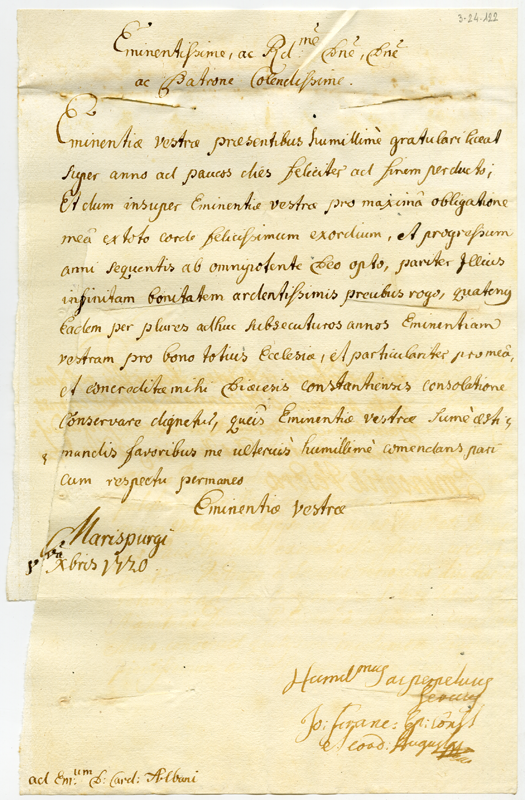 3-24-122
Eminentissime, ac Rd.me Dne, Dne
ac Patrone Colendissime.
Eminentiæ vestræ præsentibus humillimè gratulari liceat
super anno ad paucos dies feliciter ad finem perducto;
Et dum insuper Eminentiæ vestræ pro maximâ obligatione
meâ ex toto corde felicissimum exordium, et progressum
anni sequentis ab omnipotente Deo opto, pariter Illius
infinitam bonitatem ardentissimis precibus rogo, quatenus
Eadem per plures adhuc subsecuturos annos Eminentiam
vestram pro bono totius Ecclesiæ, et particulariter pro meâ,
et concreditæ mihi Diæcesis constantiensis consolatione
conservare dignetur, queis Eminentiæ vestræ sumè æsti-
mandis favoribus me ulteriùs humillimè comendans pari
cum respectu permaneo
Eminentiæ vestræ
Marispurgi
Xbris 1720.
Humil.mus ac perpetuus
servus
Jo: Franc: Ep: Const
et coad: August
ad Em.um D: Card: Albani